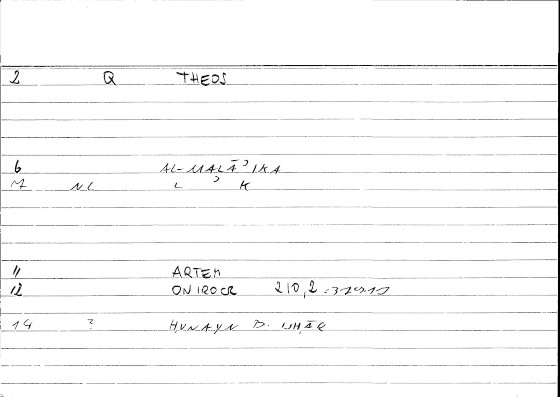 2 Q THEOS
6 AL-MALĀʾIKA
7 NL L ʾ K
11 ARTEM
12 ONIROCR 210,2
14 ? HUNAYN B. ISHĀQ